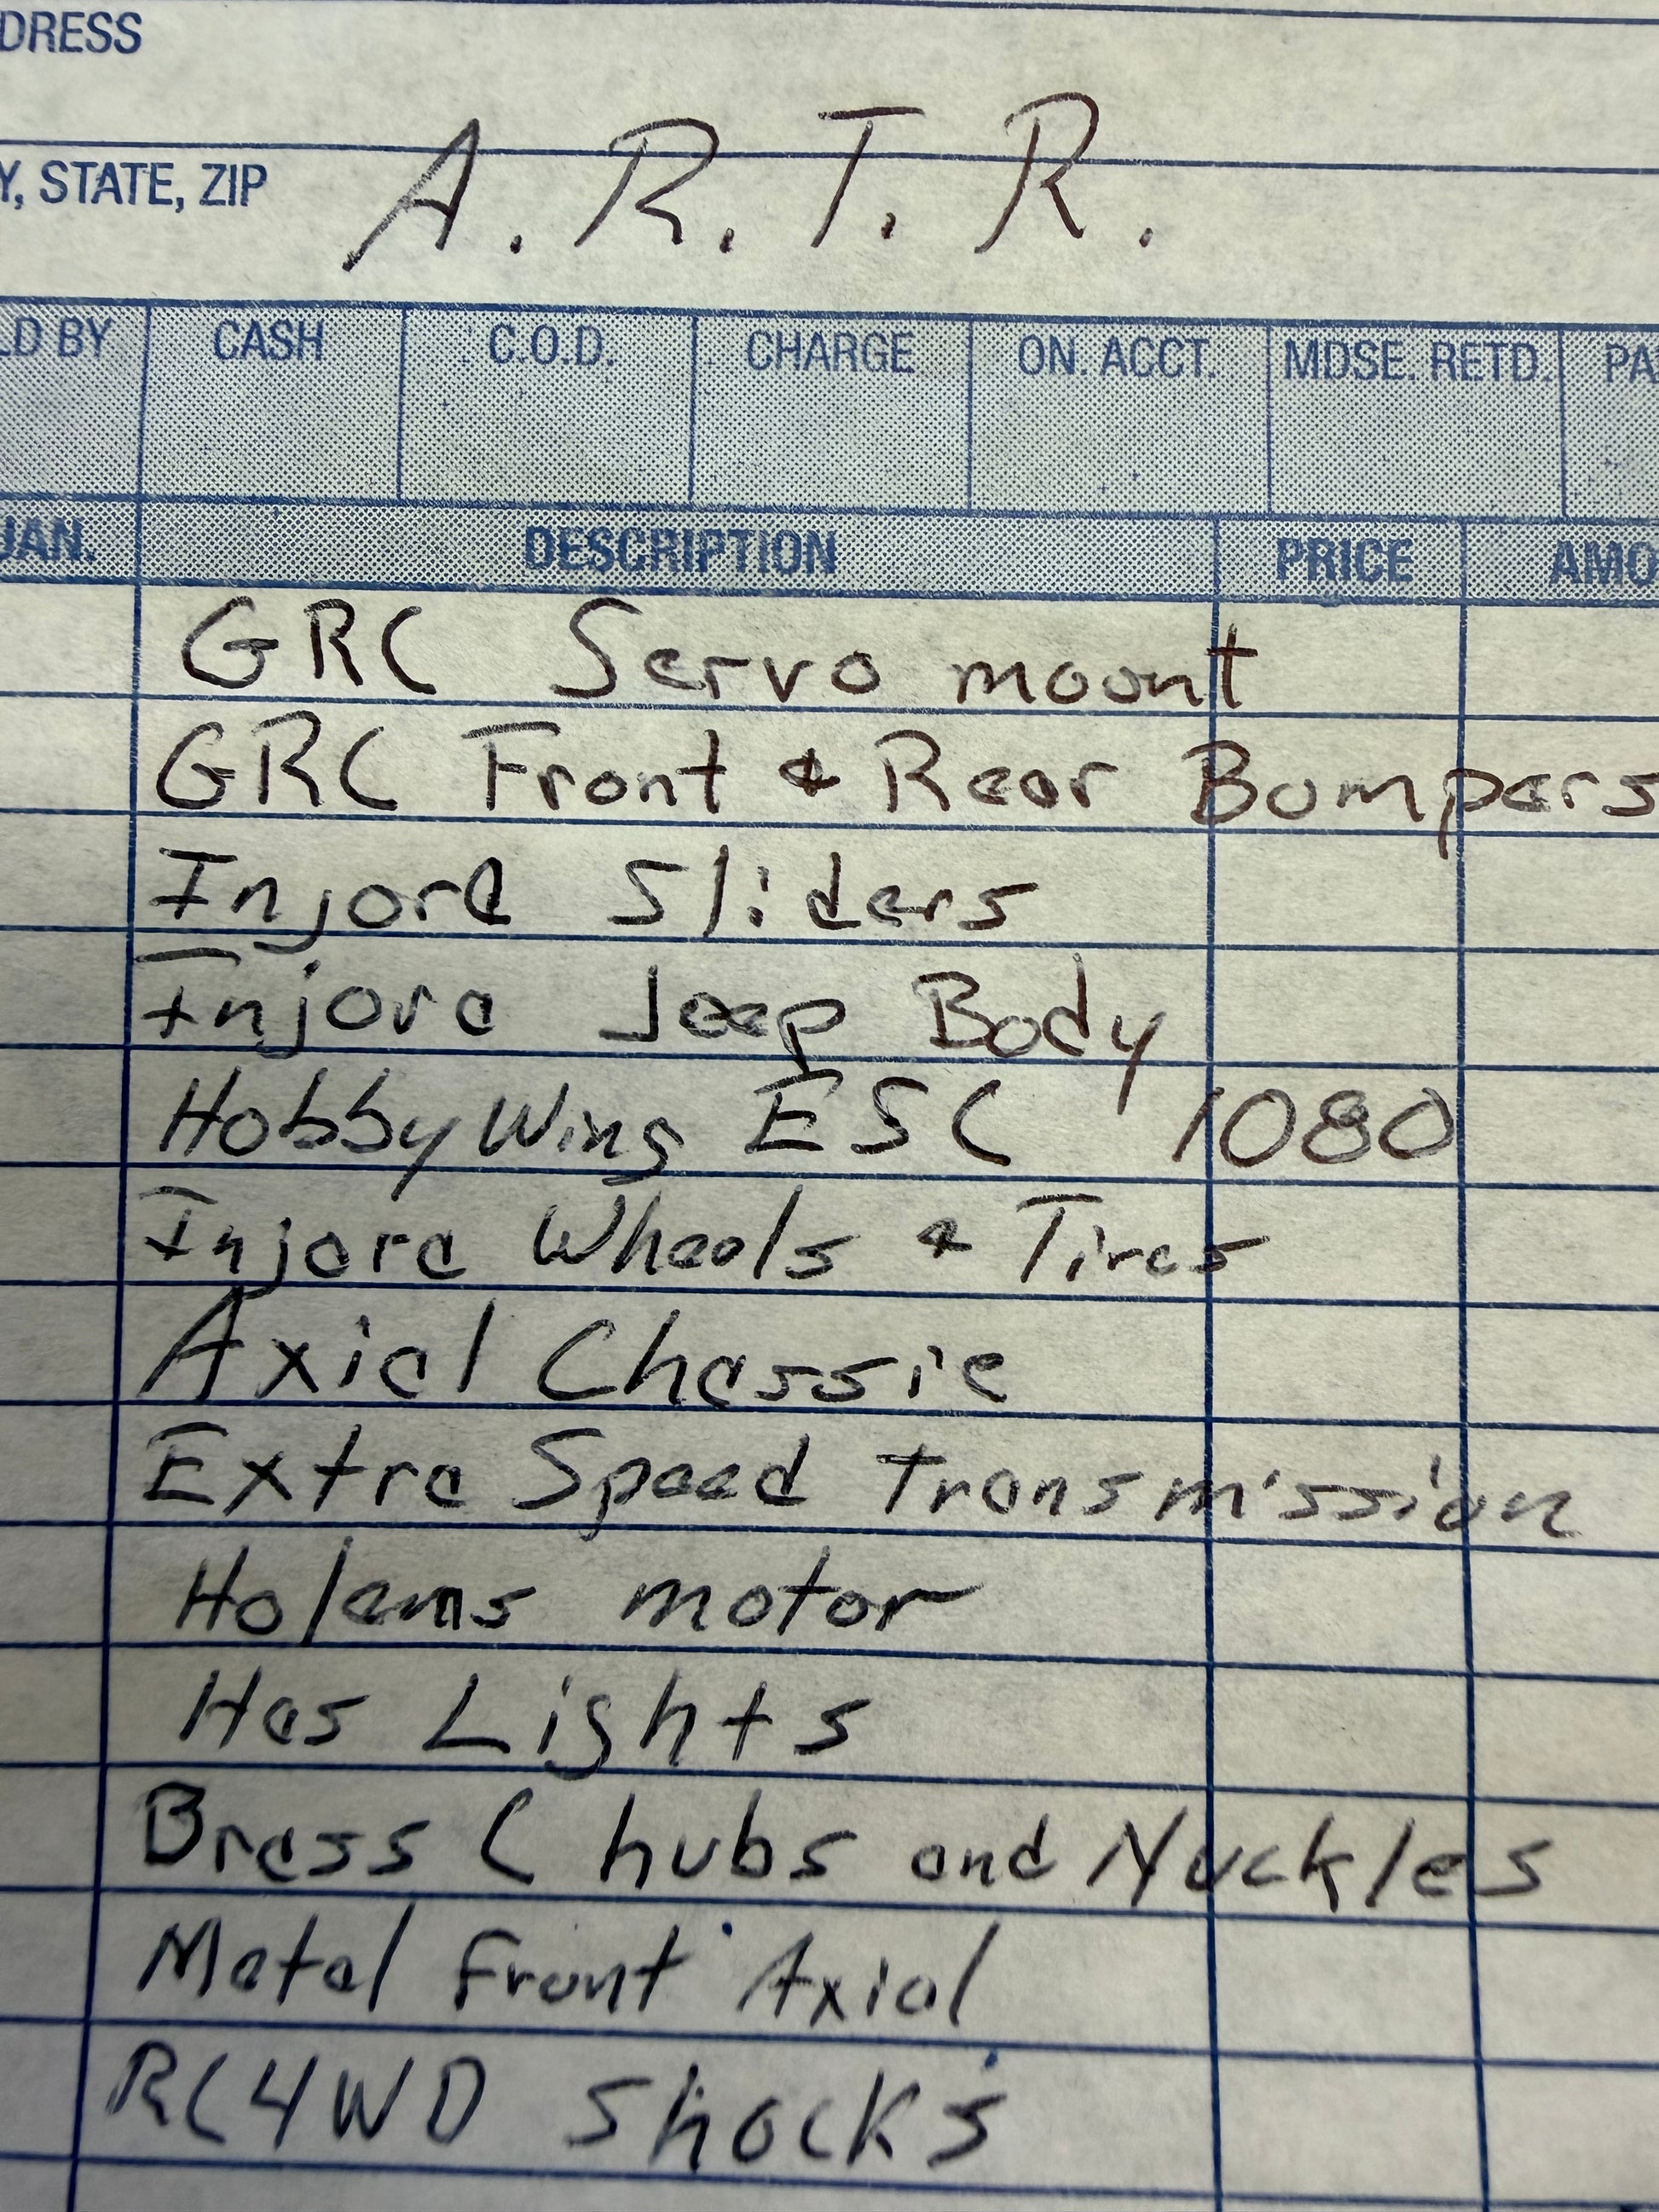 DRESS
Y, STATE, ZIP A. R. T. R.
LD BY CASH C.O.D. CHARGE ON. ACCT. MDSE. RETD. PA
UAN. DESCRIPTION PRICE AMO
GRC Servo mount
GRC Front & Rear Bumpers
Injora Sliders
Injora Jeep Body
HobbyWing ESC 1080
Injora Wheels & Tires
Axial Chassie
Extra Speed Transmission
Holems motor
Has Lights
Brass C hubs and Nuckles
Metal Front Axial
RC4WD Shocks